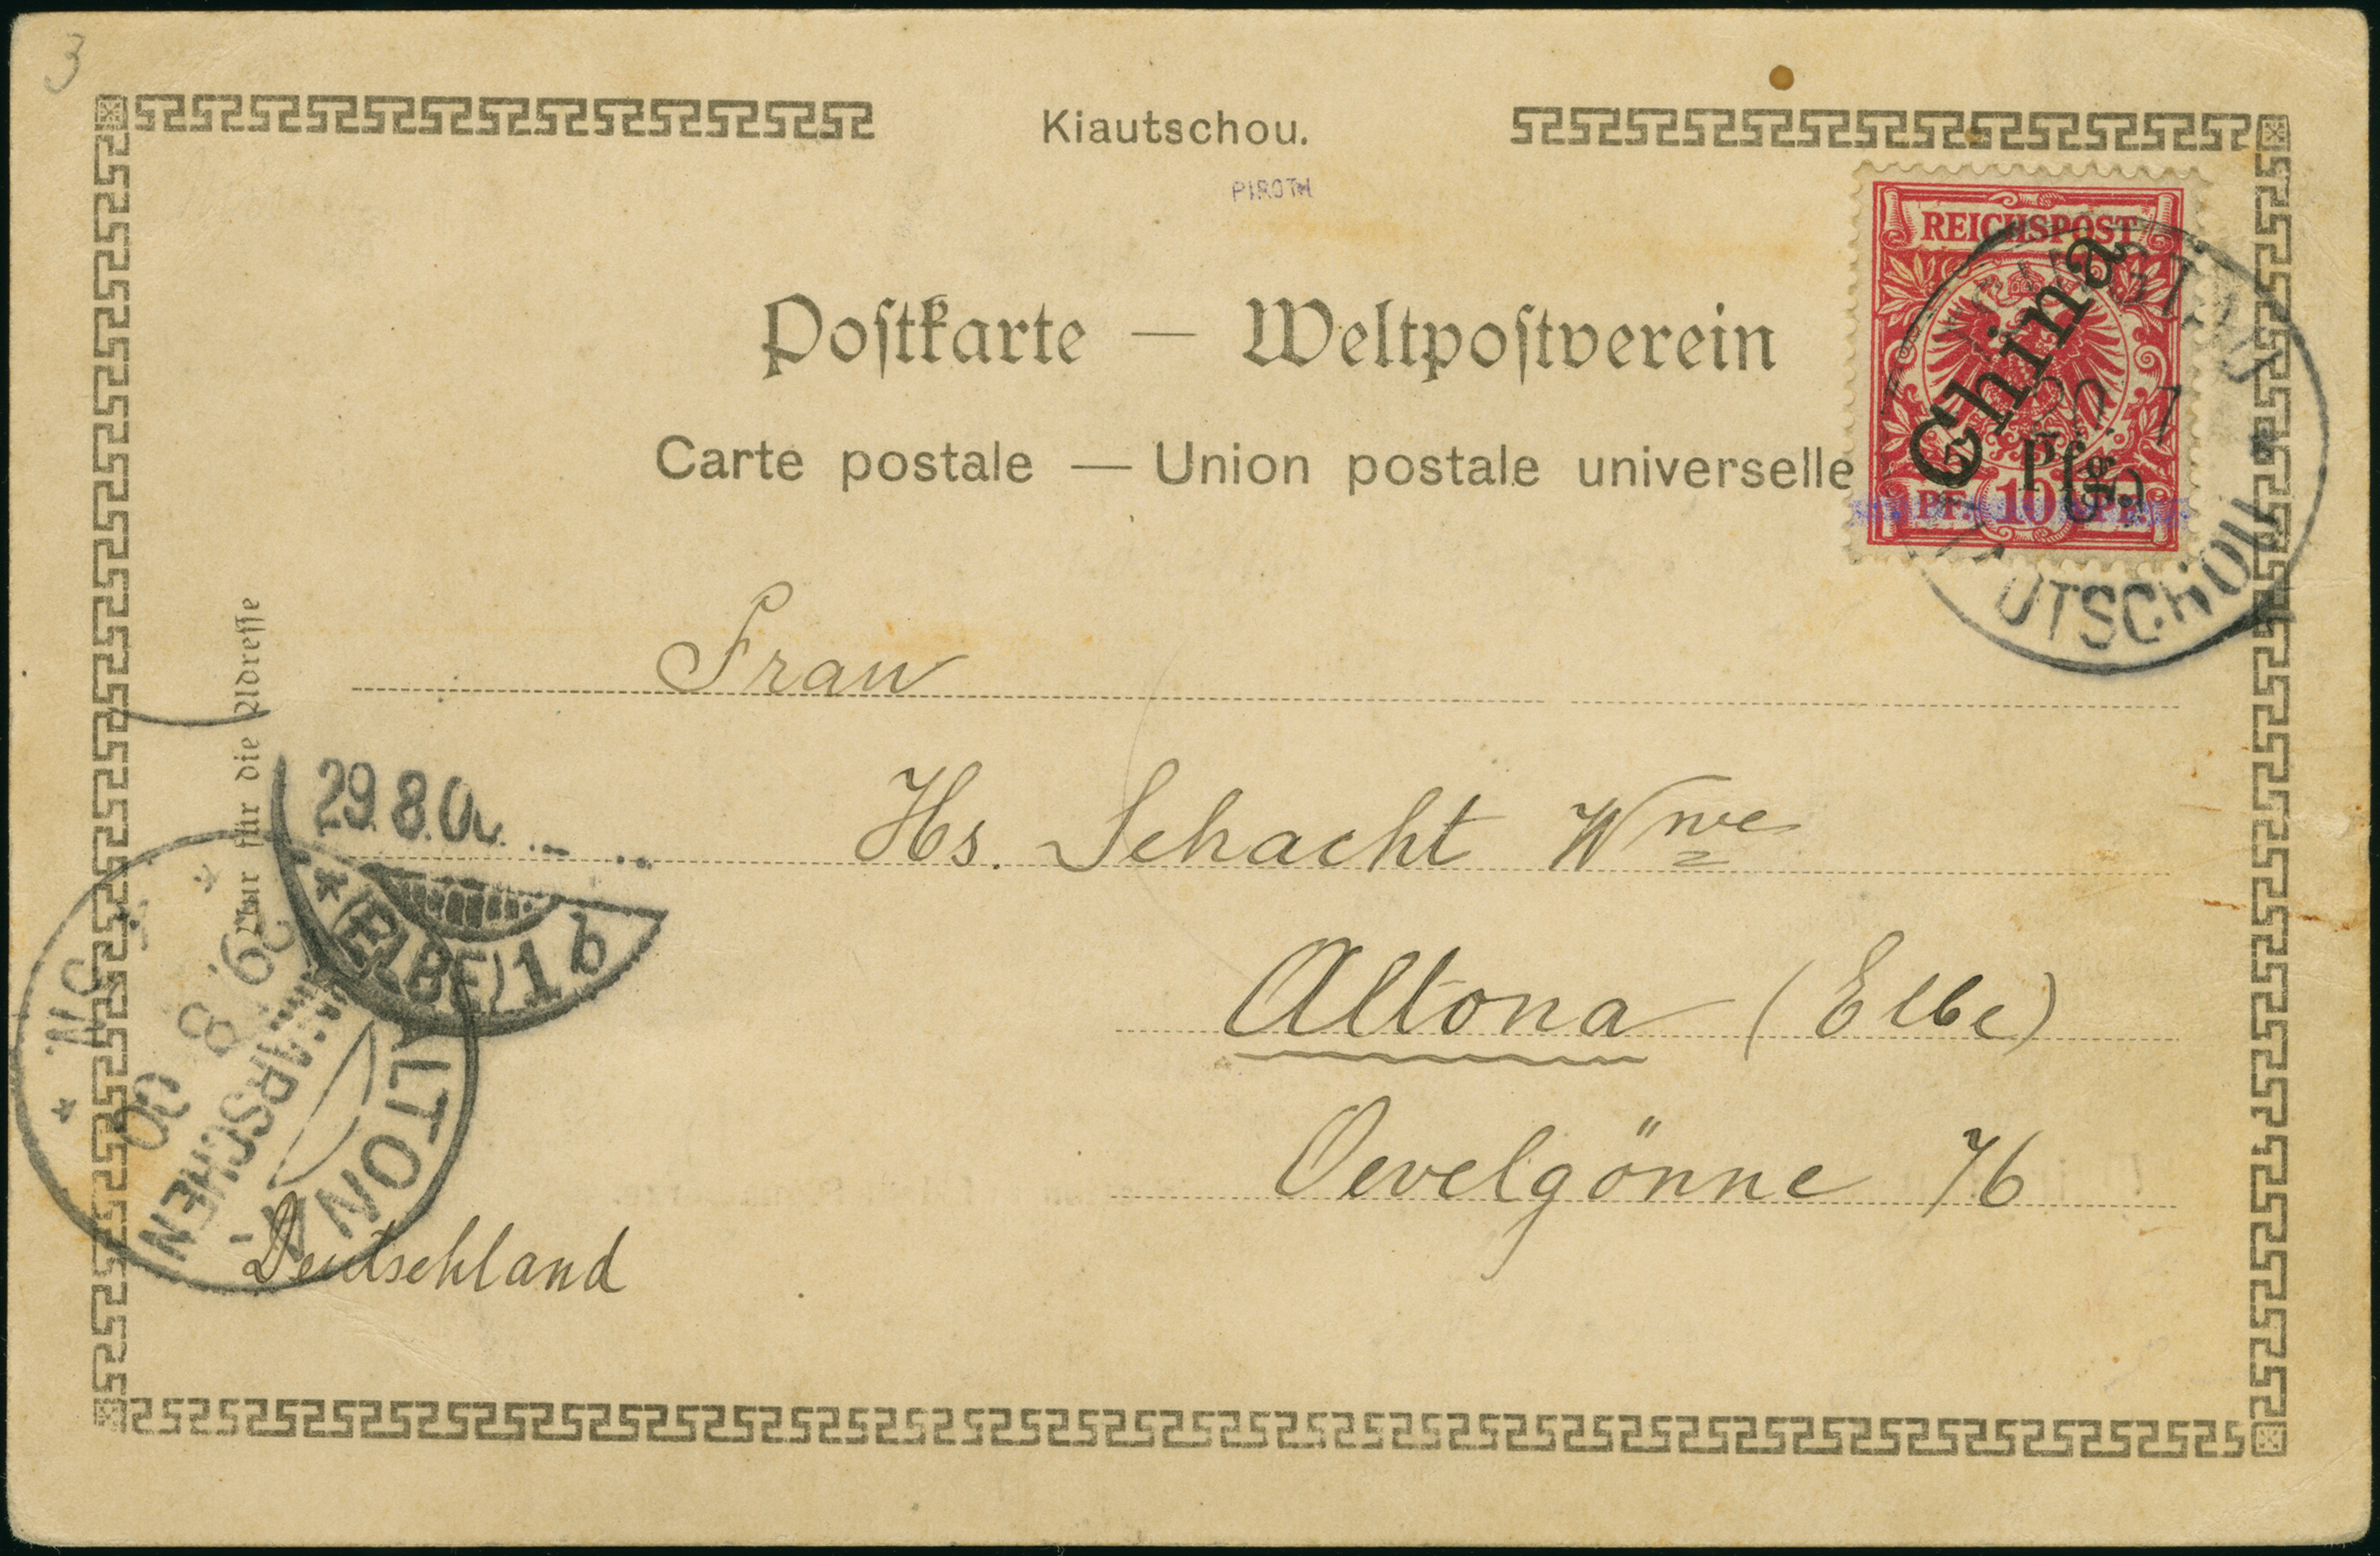 3
Kiautschou.
PIROTH
REICHSPOST
China
5 Pfg.
PF. 10 PF.
UTSCHOU
Poſtkarte — Weltpoſtverein
Carte postale — Union postale universelle
Nur für die Adreſſe
Frau
Hs. Schacht Wwe
Altona (Elbe)
Oevelgönne 76
Deutschland
29.8.00.
* (ELBE) 1 b
ALTONA
29. 8 00